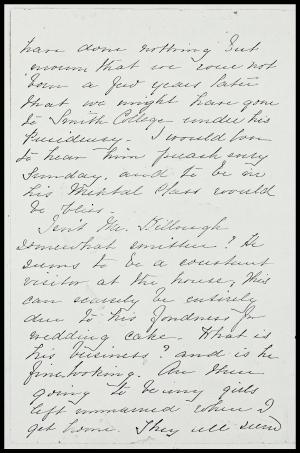 have done nothing but
mourn that we were not
born a few years later
that we might have gone
to Smith College under his
Presidency. I would love
to hear him preach every
Sunday, and to be in
his Mental Class would
be bliss.
Isn't Mr. Killough
somewhat smitten? He
seems to be a constant
visitor at the house, this
can scarcely be entirely
due to his fondness for
wedding cake. What is
his business? and is he
fine looking. Are there
going to be any girls
left unmarried when I
get home. They all seem